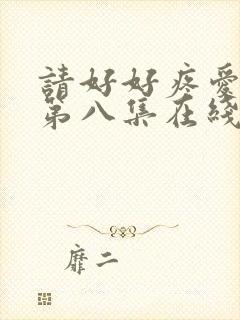 請好好疼愛
第八集在綫
靡二